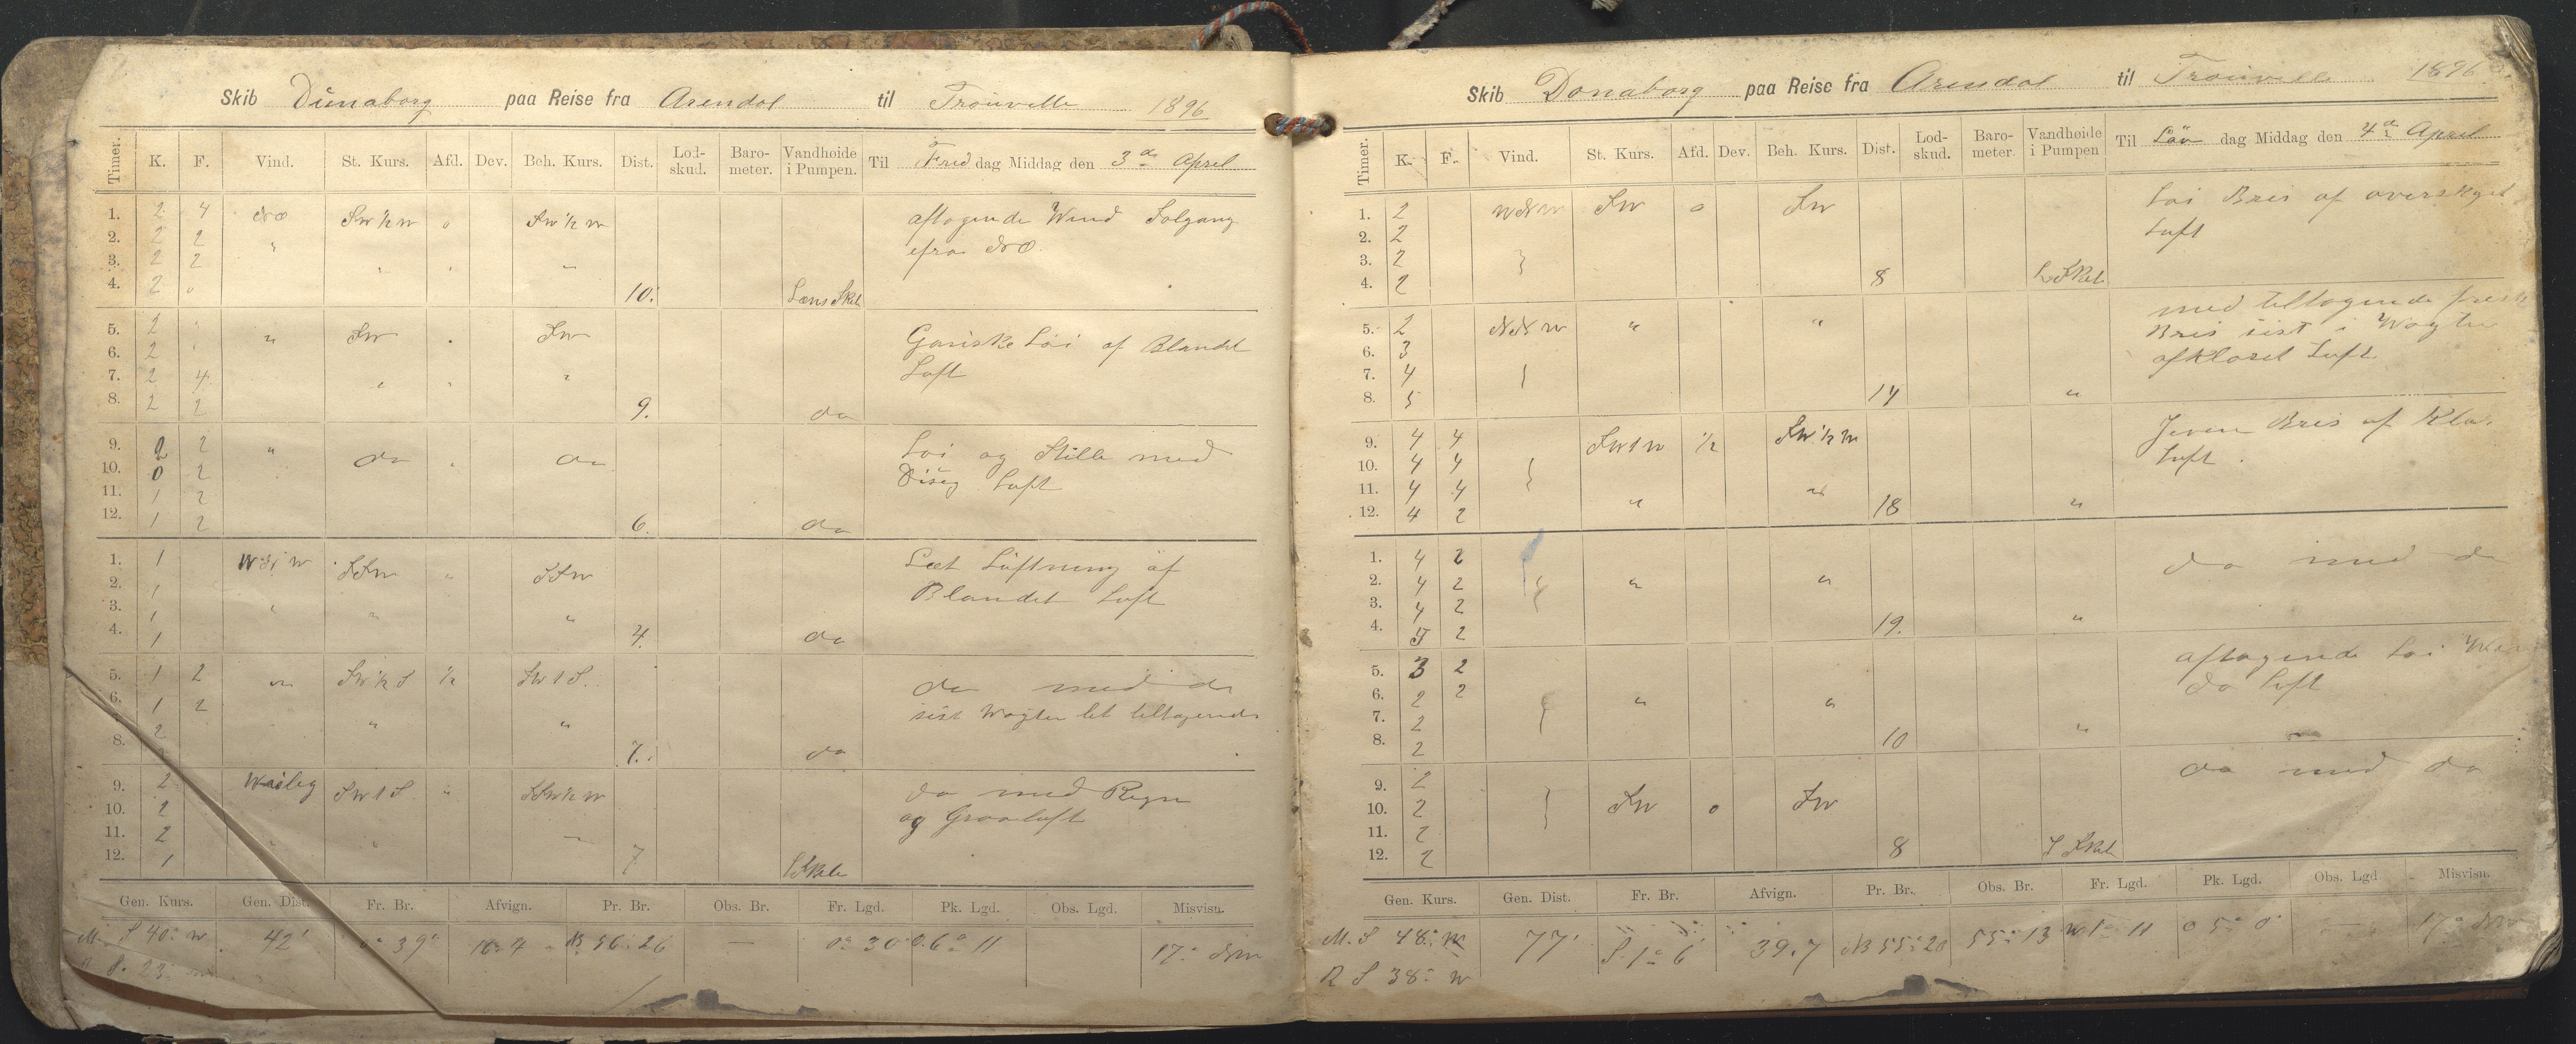 Skib Dünaborg paa Reise fra Arendal til Trouville 1896
Timer. K. F. Vind. St. Kurs. Afd. Dev. Beh. Kurs. Dist. Lod-skud. Baro-meter. Vandhøide i Pumpen. Til Fredag Middag den 3de April
1. 2 4 NO SW½W 0 SW½W aftagende Wind Solgang
2. 2 2 " efra NO.
3. 2 2 " " "
4. 2 0 10. Læns Skib
5. 2 " " SW " SW Ganske Løi af Blandet
6. 2 " Luft
7. 2 4 " " "
8. 2 2 9. do
9. 2 2 " do " do Løi og Stille med
10. 0 2 Disig Luft
11. 1 2
12. 1 2 6. do
1. 1 SSW " SSW Let Luftning af
2. 1 Blandet Luft
3. 1 " " "
4. 1 4. do
5. 1 2 " SW½S ½ SWtS. do med do
6. 1 2 sist Wagten let tiltagende
2 " "
8. 7. do
9. 2 SWtS " SSW½W do med Regn
10. 2 og Graaluft
11. 2 " "
12. 1 7 L Skib
Gen. Kurs. Gen. Dist. Fr. Br. Afvign. Pr. Br. Obs. Br. Fr. Lgd. Pk. Lgd. Obs. Lgd. Misvisn.
M. S 40° W 42' 0° 39' N. 56° 26 — 0° 30' O. 6° 11 17° NW
S. 23° W
Skib Donaborg paa Reise fra Arendal til Trouville 1896
Timer. K. F. Vind. St. Kurs. Afd. Dev. Beh. Kurs. Dist. Lod-skud. Baro-meter. Vandhøide i Pumpen Til Løv dag Middag den 4de April
1. 2 WNW SW 0 SW Løi Bris af overskyet
2. 2 Luft
3. 2
4. 2 8 L Skib
5. 2 NNW " " med tiltagende frisk
6. 3 Bris sist i Wagten
7. 4 afklaret Luft
8. 5 14 "
9. 4 4 SWtW ½ SW½W Jevn Bris af Klar
10. 4 4 Luft.
11. 4 4 " "
12. 4 2 18 "
1. 4 2 do med do
2. 4 2 " "
3. 4 2
4. 5 2 19. "
5. 3 2 aftagende Løi
6. 2 2 " " do Luft
7. 2
8. 2 10 "
9. 2 do med do
10. 2 SW 0 SW
11. 2
12. 2 8 L Skib
Gen. Kurs. Gen. Dist. Fr. Br. Afvign. Pr. Br. Obs. Br. Fr. Lgd. Pk. Lgd. Obs. Lgd Misvisn.
M. S 48° W 77' S. 1° 6 39.7 N 55° 20 55° 13 W 1° 11 O 5° 0' — 17° NW
R S 38° W